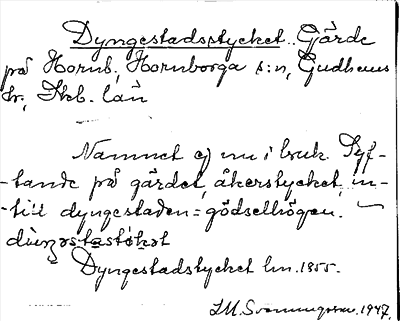 Dyngestadsstycket. Gärde
på Hornb., Hornborga s:n, Gudhems
hr., Skb. län
Namnet ej nu i bruk. Syf-
-tande på gärdet, åkerstycket in-
-till dyngestaden = gödselhögen.
Dyngestadstycket lm. 1855.
I.M. Svenningsson. 1947.